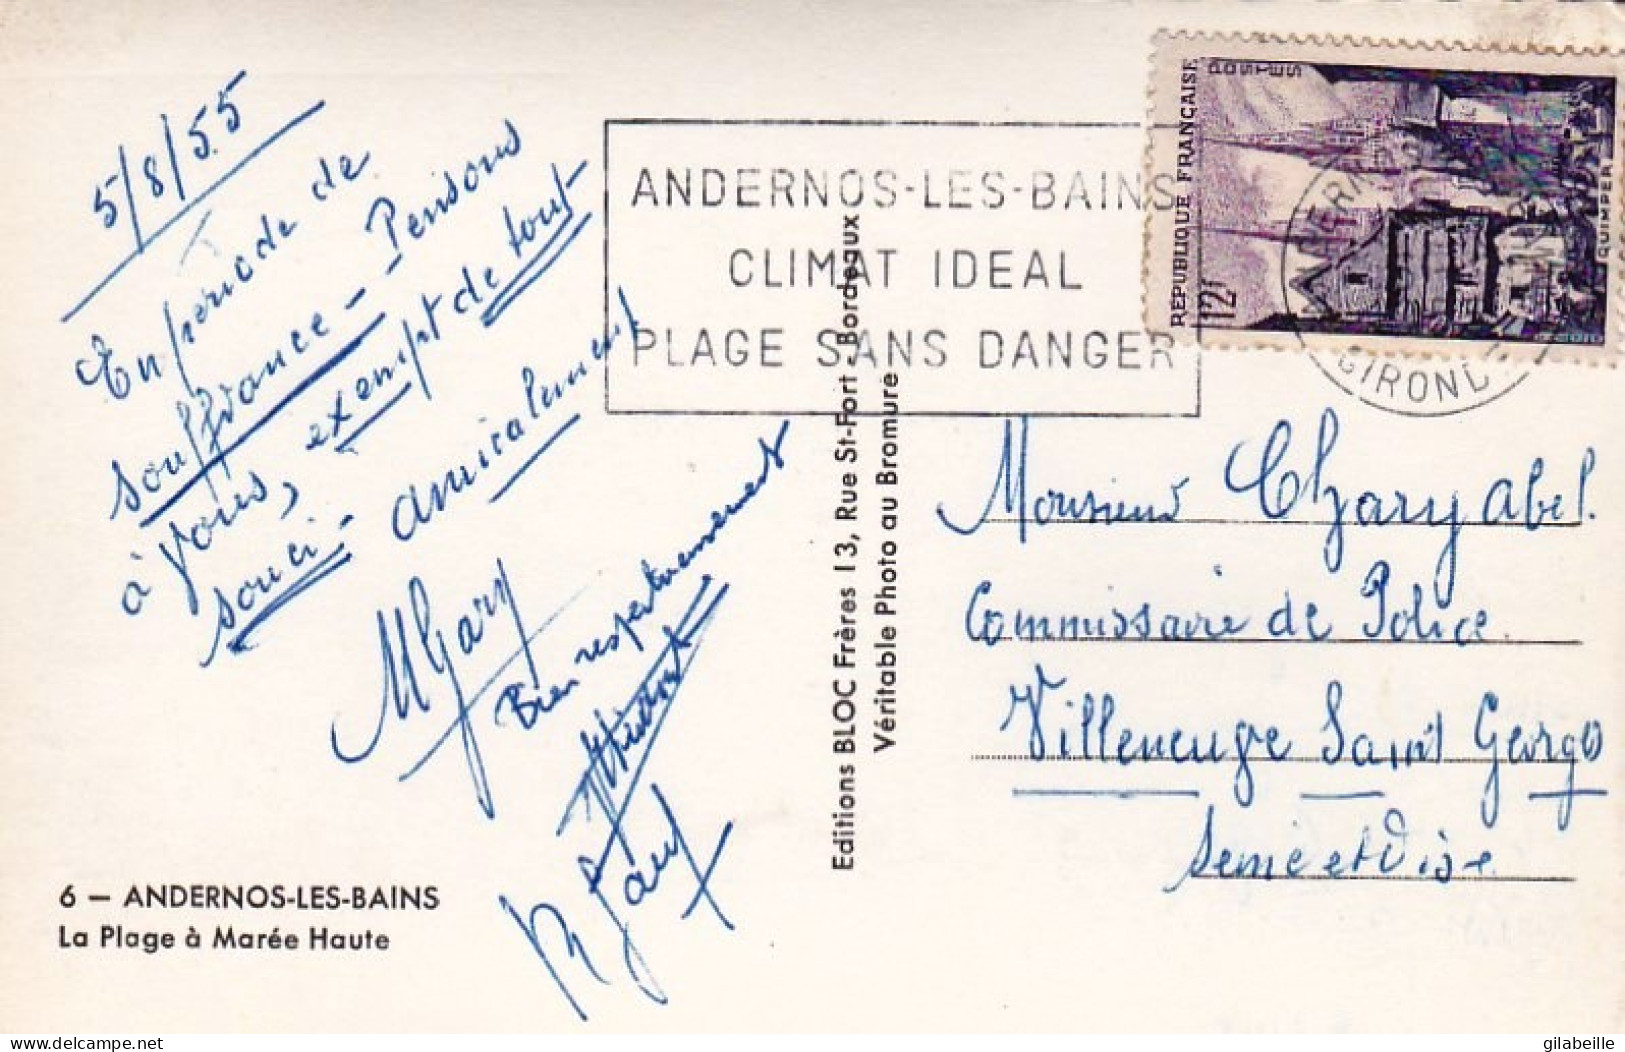 5/8/55
En période de
souffrance - Pensons
à vous, exempt de tout
souci - amicalement
MGary
Bien respectueusement
6 — ANDERNOS-LES-BAINS
La Plage à Marée Haute
Editions BLOC Frères 13, Rue St-Fort - Bordeaux
Véritable Photo au Bromure
ANDERNOS-LES-BAINS
CLIMAT IDEAL
PLAGE SANS DANGER
REPUBLIQUE FRANÇAISE
POSTES
12f
QUIMPER
GIRONDE
Monsieur Chary Abel.
Commissaire de Police
Villeneuve Saint George
Seine et Oise
delcampe.net
gilabeille